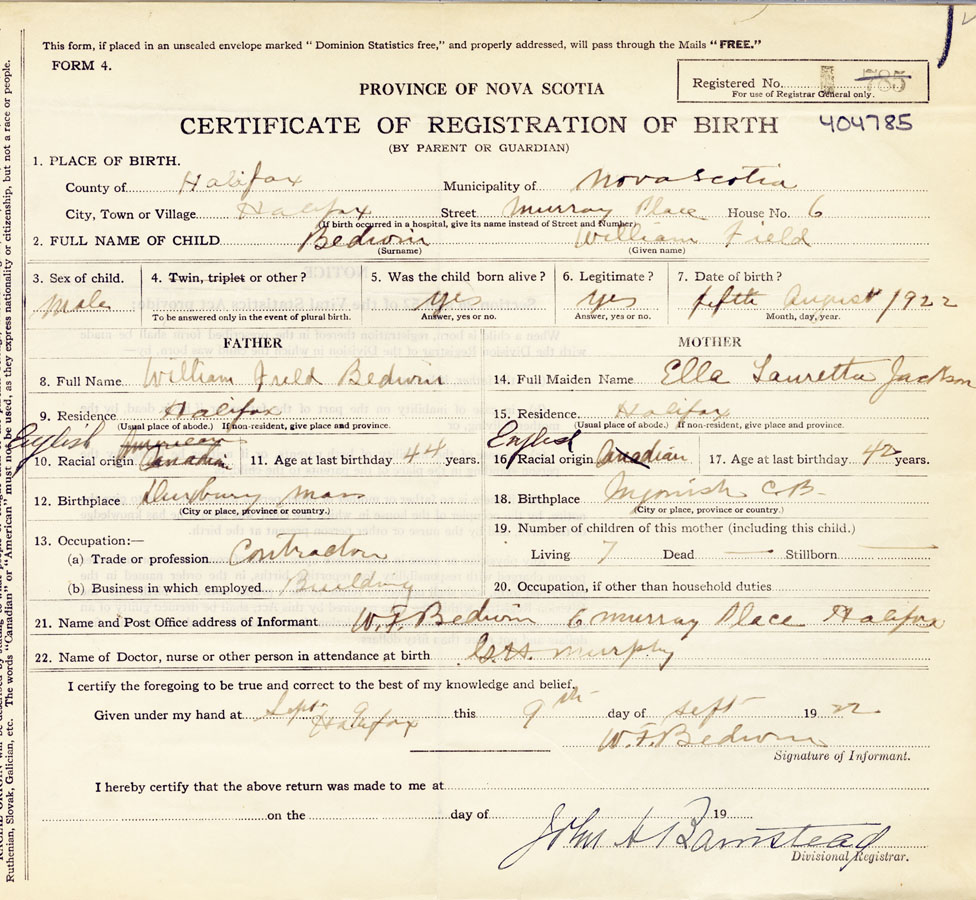 This form, if placed in an unsealed envelope marked "Dominion Statistics free," and properly addressed, will pass through the Mails "FREE."
FORM 4.
Registered No. 785
For use of Registrar General only.
PROVINCE OF NOVA SCOTIA
CERTIFICATE OF REGISTRATION OF BIRTH 404785
(BY PARENT OR GUARDIAN)
1. PLACE OF BIRTH.
County of Halifax Municipality of Nova Scotia
City, Town or Village Halifax Street Murray Place House No. 6
(If birth occurred in a hospital, give its name instead of Street and Number)
2. FULL NAME OF CHILD Bedwin William Field
(Surname) (Given name)
3. Sex of child. 4. Twin, triplet or other? 5. Was the child born alive? 6. Legitimate? 7. Date of birth?
Male yes yes fifth August 1922
To be answered only in the event of plural birth. Answer, yes or no. Answer, yes or no. Month, day, year.
FATHER MOTHER
8. Full Name William Field Bedwin 14. Full Maiden Name Ella Lauretta Jackson
9. Residence Halifax 15. Residence. Halifax
(Usual place of abode.) If non-resident, give place and province. (Usual place of abode.) If non-resident, give place and province.
English American English
10. Racial origin Canadian 11. Age at last birthday 44 years. 16. Racial origin Canadian 17. Age at last birthday 42 years.
12. Birthplace Duxbury Mass 18. Birthplace C.B.
(City or place, province or country.) (City or place, province or country.)
13. Occupation:— 19. Number of children of this mother (including this child.)
(a) Trade or profession Contractor Living 7 Dead — Stillborn —
(b) Business in which employed Building 20. Occupation, if other than household duties
21. Name and Post Office address of Informant W.F. Bedwin 6 Murray Place Halifax
22. Name of Doctor, nurse or other person in attendance at birth Murphy
I certify the foregoing to be true and correct to the best of my knowledge and belief,
Given under my hand at Sept. 9 Halifax this 9th day of Sept 1922
W.F. Bedwin
Signature of Informant.
I hereby certify that the above return was made to me at
on the day of 19
John H Barnstead
Divisional Registrar.
Ruthenian, Slovak, Galician, etc. The words "Canadian" or "American" must not be used, as they express nationality or citizenship, but not a race or people.